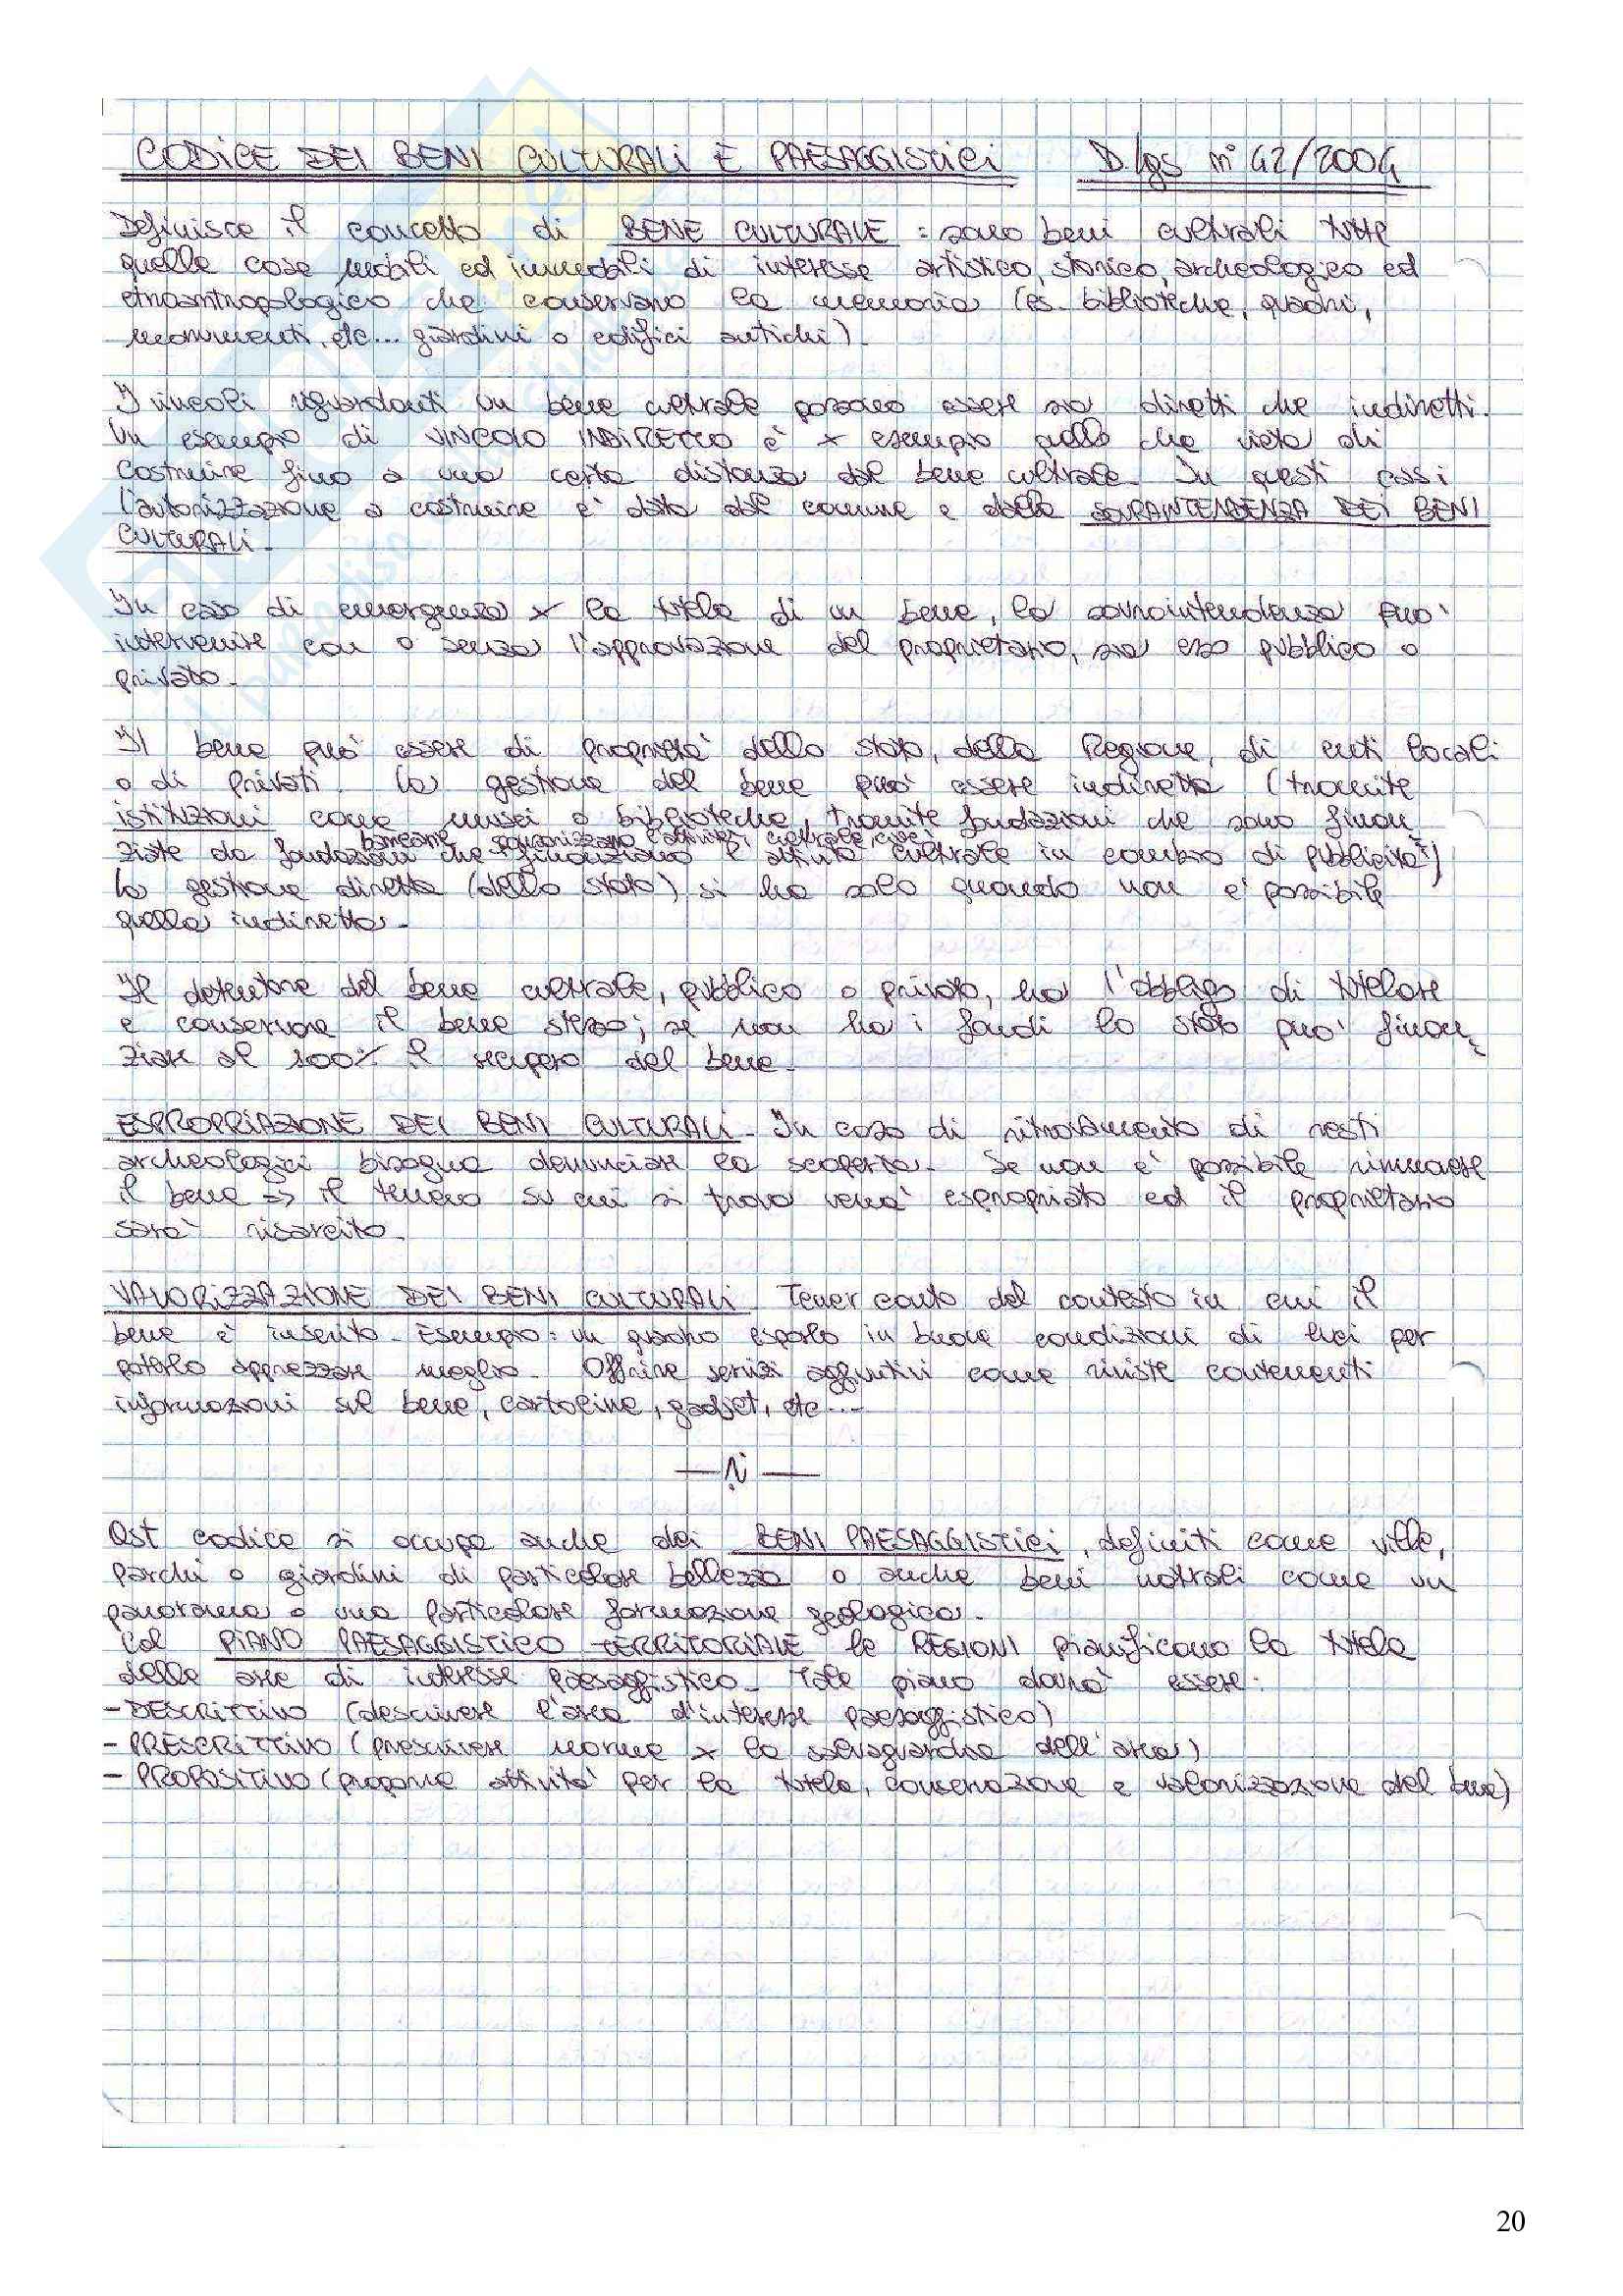 CODICE DEI BENI CULTURALI E PAESAGGISTICI D.lgs n° 42/2004
Definisce il concetto di BENE CULTURALE: sono beni culturali tutte
quelle cose mobili ed immobili di interesse artistico, storico, archeologico ed
etnoantropologico che conservano la memoria (es. biblioteche, quadri,
monumenti, etc... giardini o edifici antichi).
I vincoli riguardanti un bene culturale possono essere sia diretti che indiretti.
Un esempio di VINCOLO INDIRETTO è x esempio quello che vieta di
costruire fino a una certa distanza dal bene culturale. In questi casi
l'autorizzazione a costruire e' data dal comune e dalla SOVRANTENDENZA DEI BENI
CULTURALI.
In caso di emergenza x la tutela di un bene, la sovraintendenza puo'
intervenire con o senza l'approvazione del proprietario, sia esso pubblico o
privato.
Il bene puo' essere di proprieta' dello stato, della Regione, di enti locali
o di privati. La gestione del bene puo' essere indiretta (tramite
istituzioni come musei o biblioteche, tramite fondazioni che sono finan
bancarie sponsorizzano l'attivita' culturale
ziate da fondazioni che finanziano l'attivita' culturale in cambio di pubblicita')
La gestione diretta (dello stato) si ha solo quando non e' possibile
quella indiretta.
Il detentore del bene culturale, pubblico o privato, ha l'obbligo di tutelare
e conservare il bene stesso; se non ha i fondi lo stato puo' finan
ziare al 100% il recupero del bene.
ESPROPRIAZIONE DEI BENI CULTURALI. In caso di ritrovamento di resti
archeologici bisogna denunciare la scoperta. Se non e' possibile rimuovere
il bene => il terreno su cui si trova verra' espropriato ed il proprietario
sara' risarcito.
VALORIZZAZIONE DEI BENI CULTURALI Tener conto del contesto in cui il
bene e' inserito. Esempio: un quadro esposto in buone condizioni di luci per
poterlo apprezzare meglio. Offrire servizi aggiuntivi come riviste contenenti
informazioni sul bene, cartoline, gadjet, etc...
Qst codice si occupa anche dei BENI PAESAGGISTICI, definiti come ville,
parchi o giardini di particolare bellezza o anche beni naturali come un
panorama o una particolare formazione geologica.
Col PIANO PAESAGGISTICO TERRITORIALE le REGIONI pianificano la tutela
delle aree di interesse paesaggistico. Tale piano dovra' essere:
- DESCRITTIVO (descrivere l'area d'interesse paesaggistico)
- PRESCRITTIVO (prescrivere norme x la salvaguardia dell'area)
- PROPOSITIVO (proporre attivita' per la tutela, conservazione e valorizzazione del bene)
20